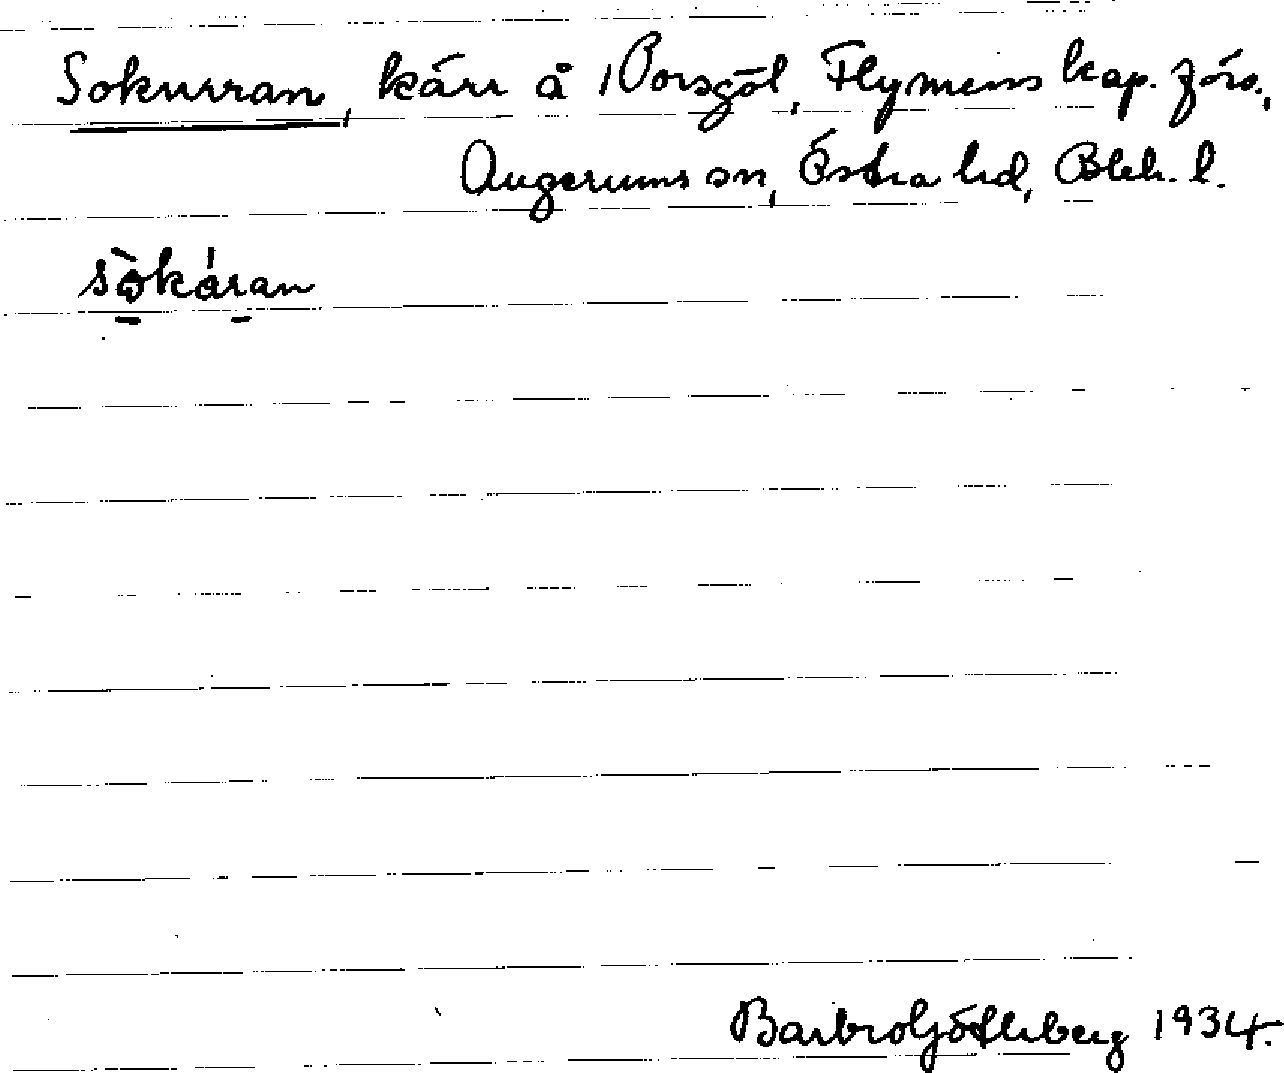 Sokurran, kärr å Porsgöl, Flymens kap. förs.,
Augerums sn, Östra hd, Blek. l.
sòkáran
Barbro Götherberg 1934.